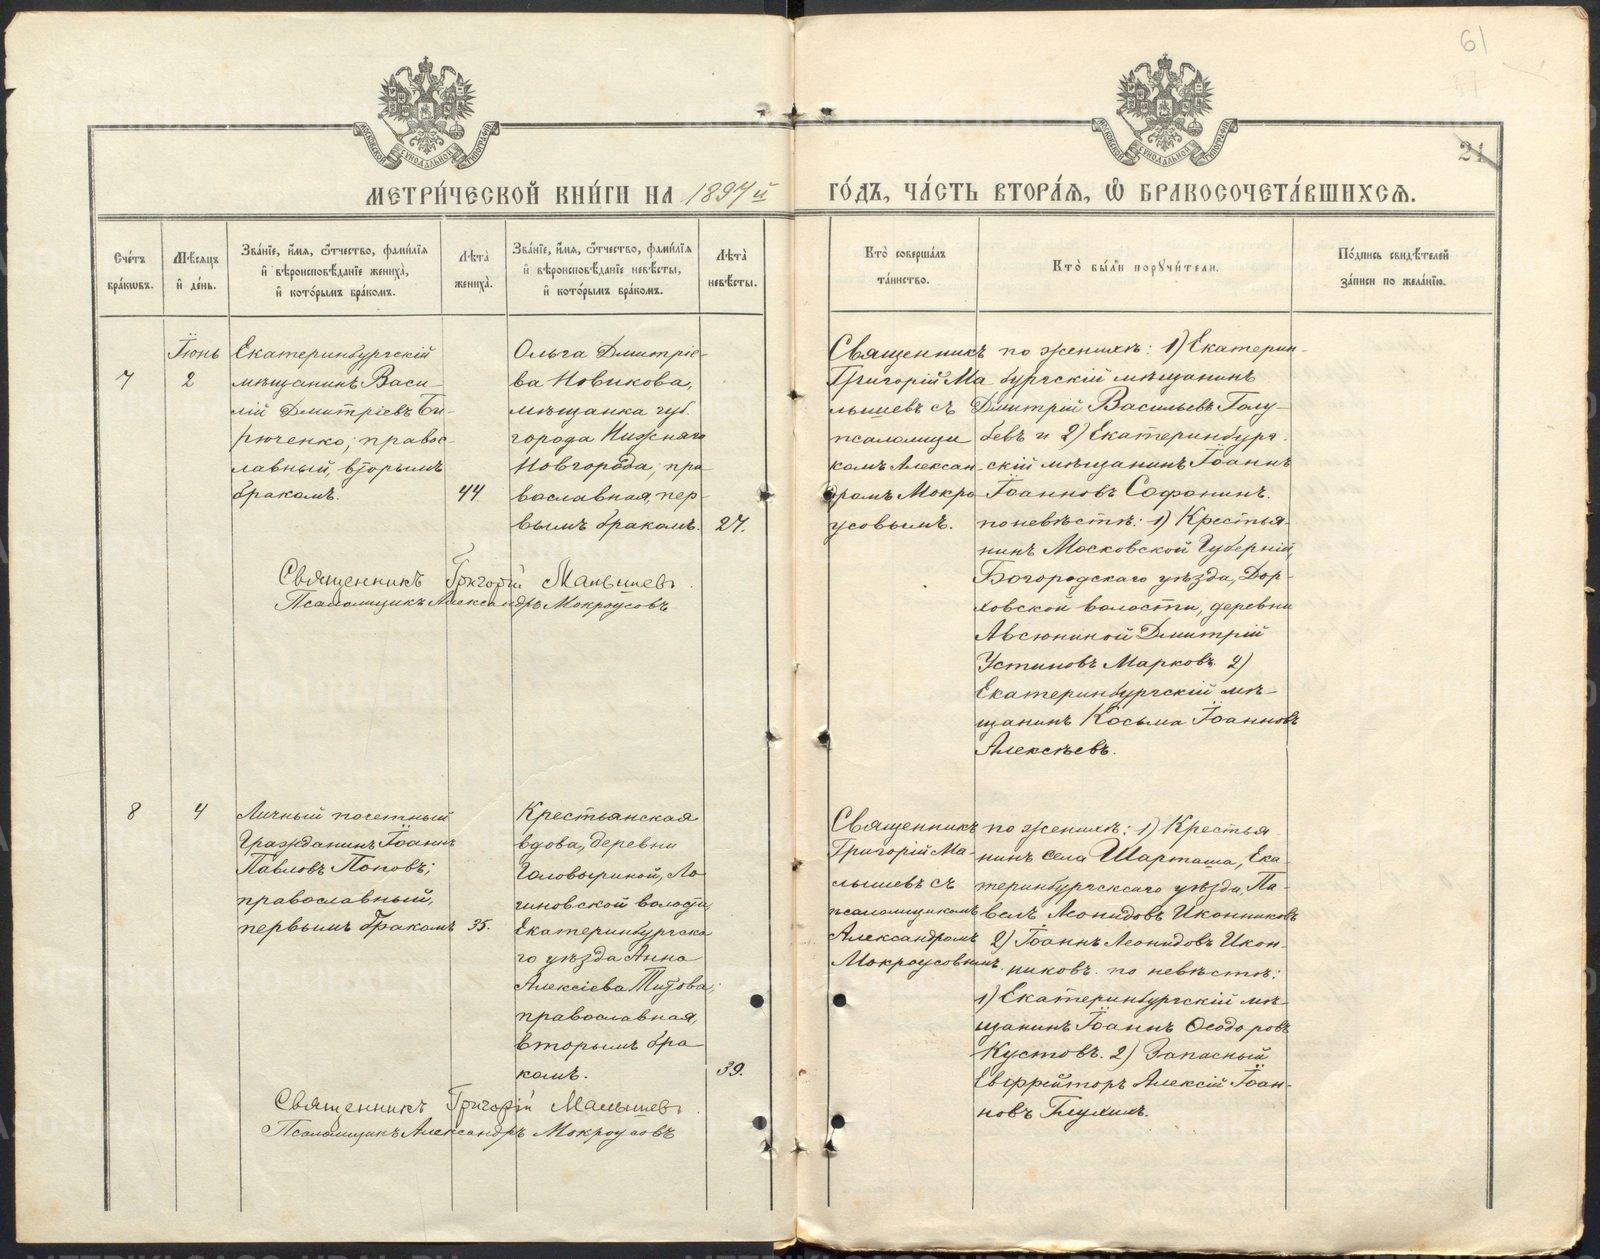 61
21
МЕТРИ́ЧЕСКОЙ КНИ́ГИ НА 1897й
ГО́ДЪ, ЧА́СТЬ ВТОРА́Я, Ѽ БРАКОСОЧЕТА́ВШИХСЯ.
Сче́тъ бра́кѡвъ.
Мѣ́сяцъ и҆ де́нь.
Зва́нїе, и҆́мя, ѻ҆́тчество, фами́лїя
и҆ вѣроисповѣ́данїе жениха̀,
и҆ кото́рымъ бра́комъ.
Лѣ́та жениха̀.
Зва́нїе, и҆́мя, ѻ҆́тчество, фами́лїя
и҆ вѣроисповѣ́данїе невѣ́сты,
и҆ кото́рымъ бра́комъ.
Лѣ́та невѣ́сты.
Кто̀ соверша́лъ
та́инство.
Кто̀ бы́ли поручи́тели.
По́дпись свидѣ́телей
за́писи по жела́нїю.
7
Іюнь
2
Екатеринбургскій
мѣщанинъ Васи-
лій Дмитріевъ Би-
рюченко, правос-
лавный, вторымъ
бракомъ.
44
Ольга Дмитріе-
ва Новикова,
мѣщанка губ.
города Нижняго
Новгорода, пра
вославная, пер-
вымъ бракомъ.
27.
Священникъ
Григорій Ма
лышевъ съ
псаломщи
комъ Алексан-
дромъ Мокро
усовымъ.
по женихѣ: 1) Екатерин-
бургскій мѣщанинъ
Дмитрій Васильевъ Голу-
бевъ и 2) Екатеринбург-
скій мѣщанинъ Іоаннъ
Іоанновъ Софонинъ.
по невѣстѣ: 1) Крестья-
нинъ Московской Губерніи,
Богородскаго уѣзда, Дор-
ховской волости, деревни
Авсюниной Дмитрій
Устиновъ Марковъ 2)
Екатеринбургскій мѣ-
щанинъ Косьма Іоанновъ
Алексѣевъ.
Священникъ Григорій Малышевъ
Псаломщикъ Александръ Мокроусовъ
8
4
Личный почетный
Гражданинъ Іоаннъ
Павловъ Поповъ;
православный,
первымъ бракомъ
35.
Крестьянская
вдова, деревни
Головыриной, Ло
гиновской волости,
Екатеринбургска
го уѣзда Анна
Алексіева Титова;
православная,
вторымъ бра
комъ.
39.
Священникъ
Григорій Ма-
лышевъ съ
псаломщикомъ
Александромъ
Мокроусовымъ.
по женихѣ: 1) Крестья-
нинъ села Шарташа, Ека-
теринбургскаго уѣзда, Па-
велъ Леонидовъ Иконниковъ
2) Іоаннъ Леонидовъ Икон-
никовъ. по невѣстѣ:
1) Екатеринбургскій мѣ-
щанинъ Іоаннъ Ѳеодоровъ
Кустовъ. 2) Запасный
Ефрейторъ Алексій Іоан-
новъ Глухихъ.
Священникъ Григорій Малышевъ
Псаломщикъ Александръ Мокроусовъ